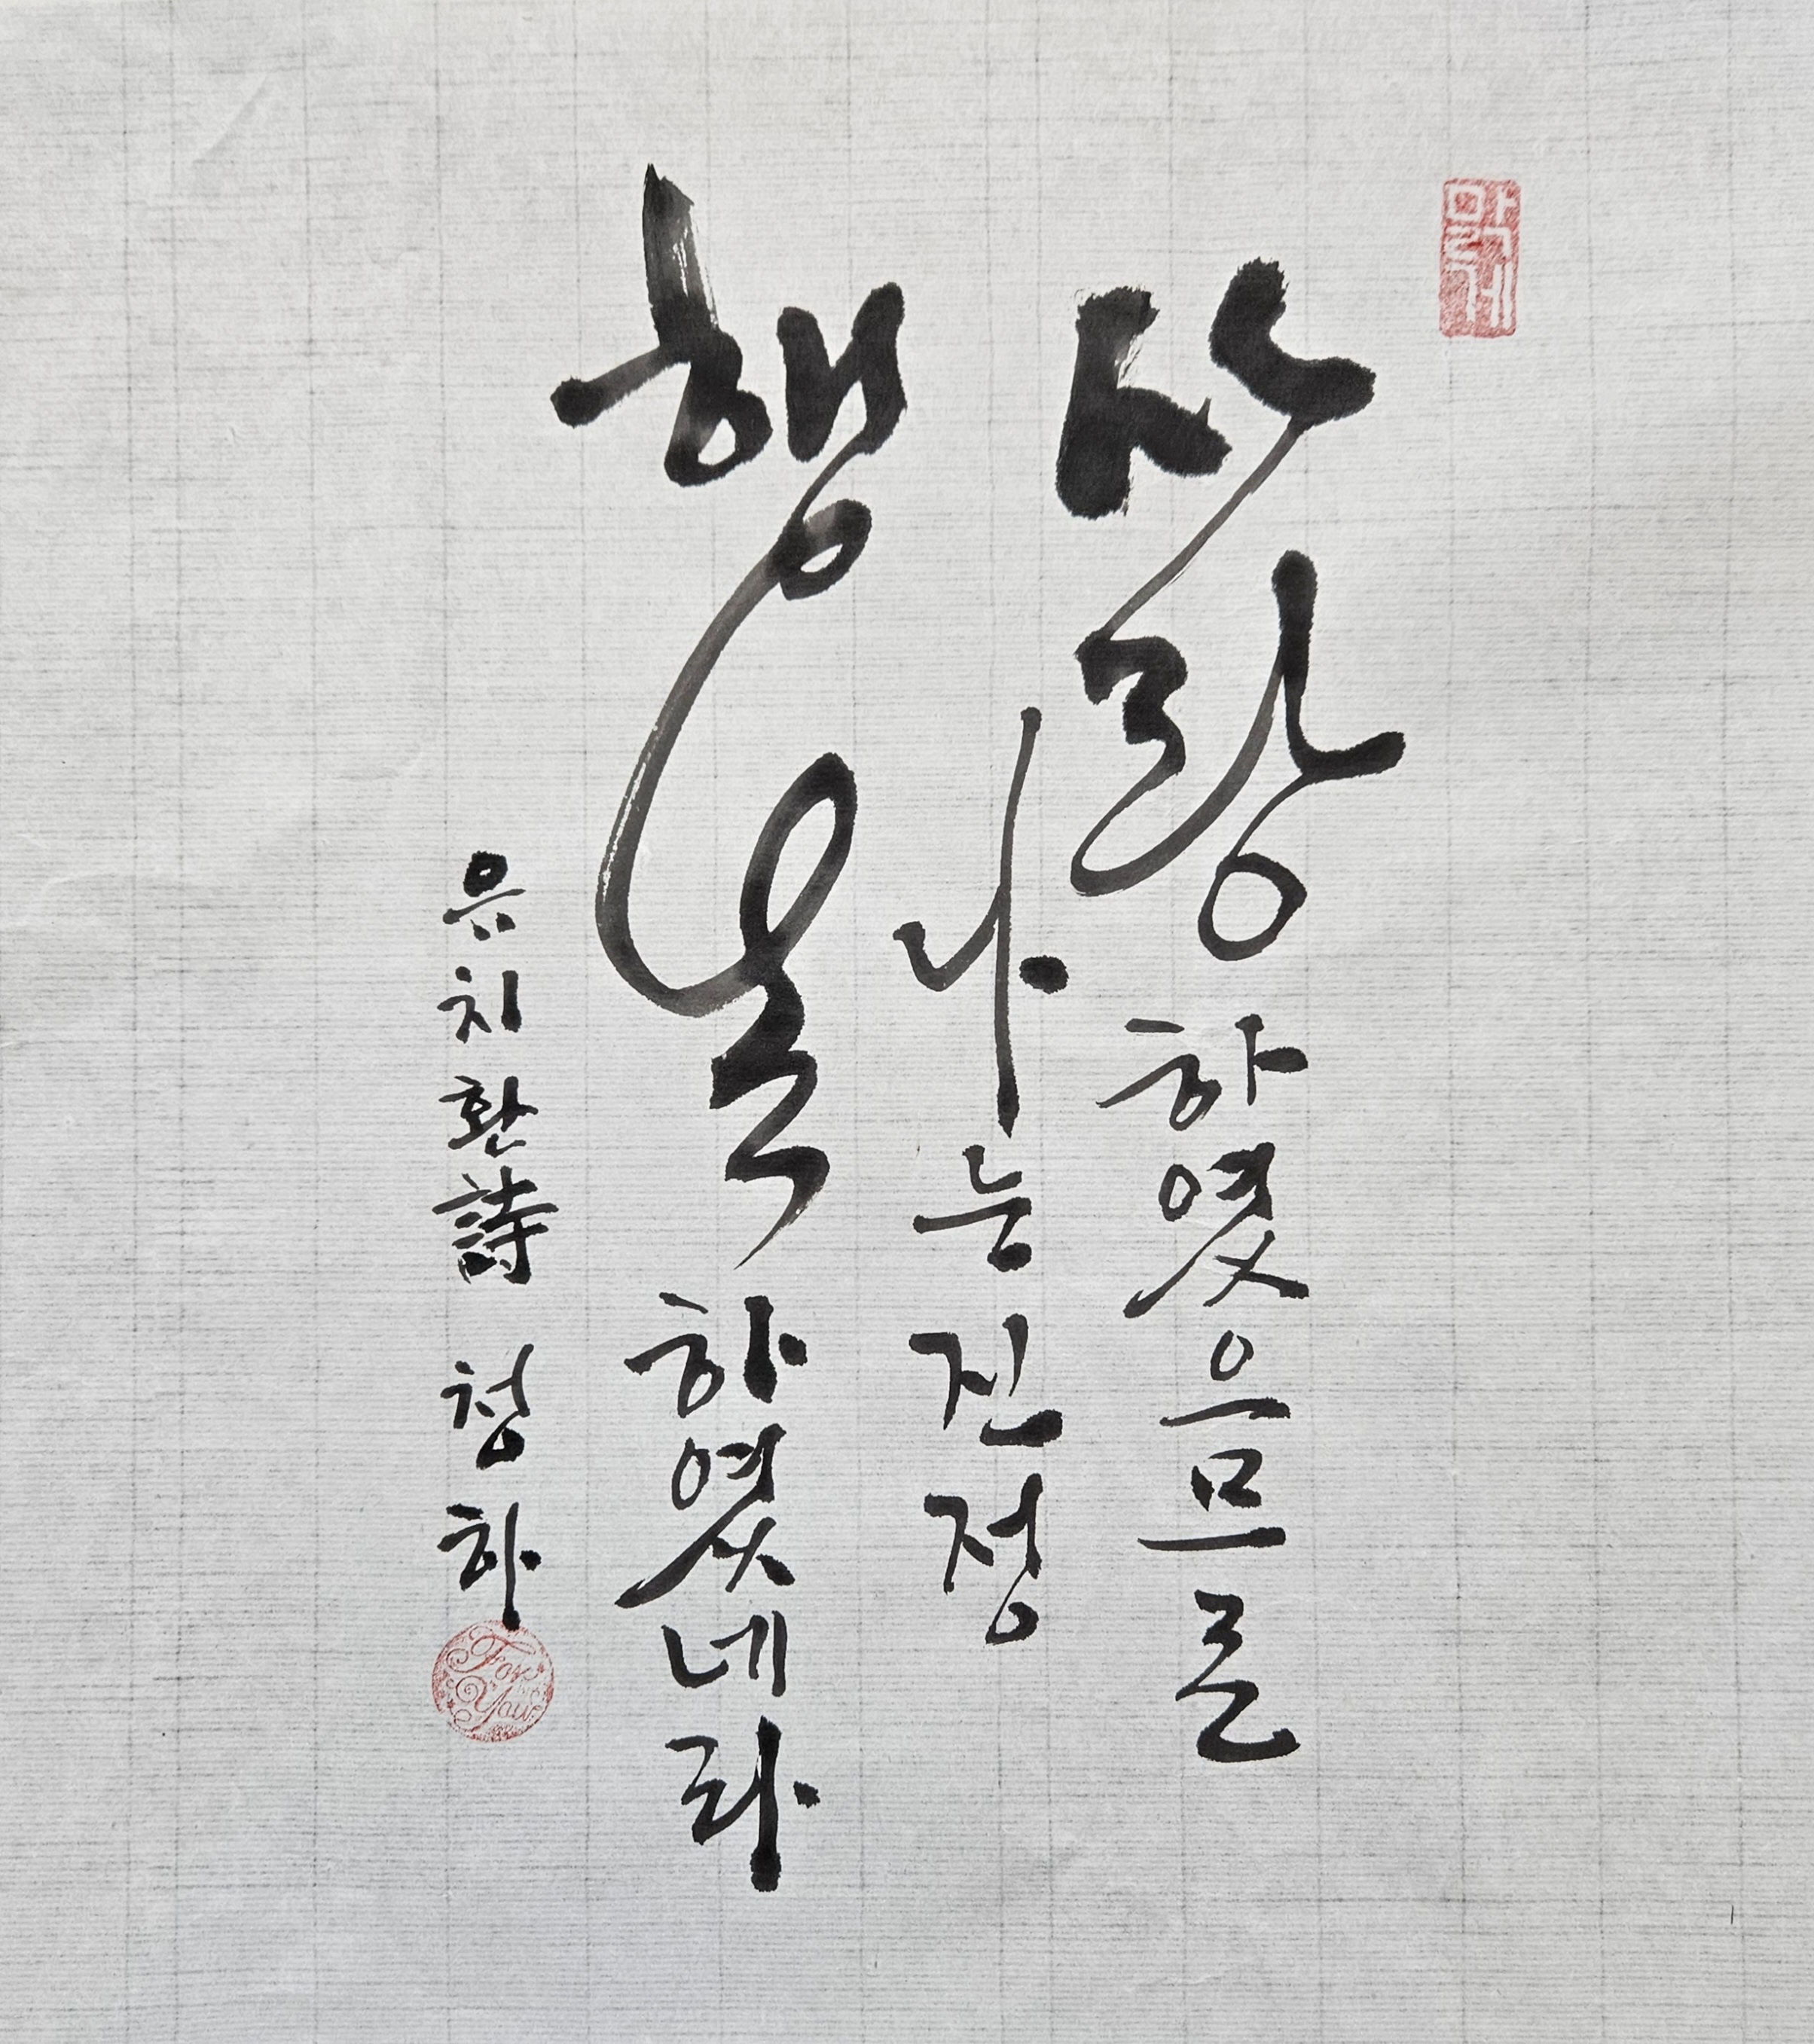 맑게
사랑하였으므로
나는 진정
행복하였네라
유치환 詩 청하
For You